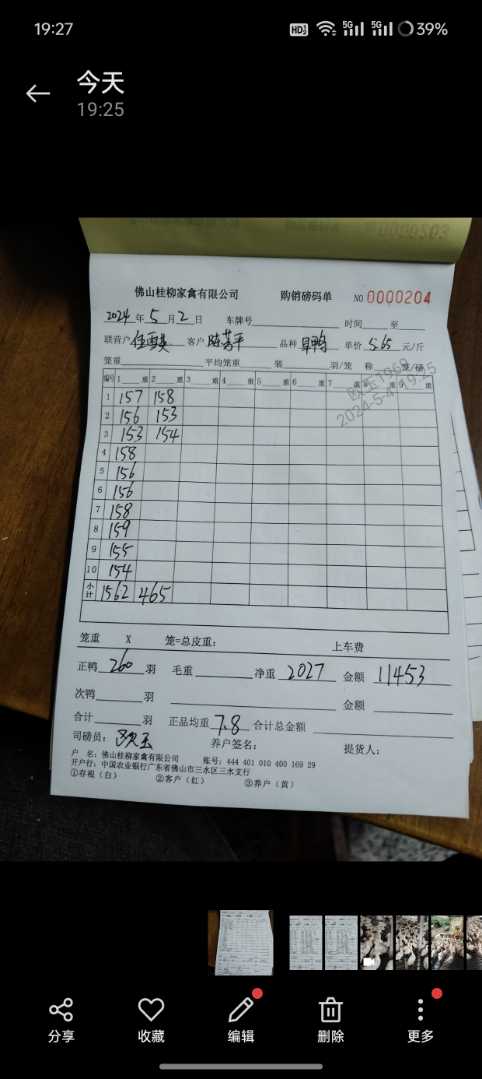 19:27
HD 5G 5G 39%
今天
19:25
0000203
佛山桂柳家禽有限公司 购销磅码单 NO 0000204
2024年5月2日 车牌号 时间 至
联营户 客户 陈芳平 品种 单价 5.65 元/斤
笼重 平均笼重 装 羽/笼 称 笼/磅
1968
2024-5-4 19:25
编号 1 重 2 重 3 重 4 重 5 重 6 重 7 重 8 重 9 重
1 157 158
2 156 153
3 153 154
4 158
5 156
6 156
7 158
8 159
9 155
10 154
小计 1562 465
笼重 X 笼=总皮重: 上车费
正鸭 260 羽 毛重 净重 2027 金额 11453
次鸭 羽 金额
合计 羽 正品均重 7.8 合计总金额
司磅员: 养户签名: 提货人:
户 名: 佛山桂柳家禽有限公司 账号: 444 401 010 400 169 29
开户行: 中国农业银行广东省佛山市三水区三水支行
①存根(白) ②客户(红) ③养户(黄)
分享 收藏 编辑 删除 更多